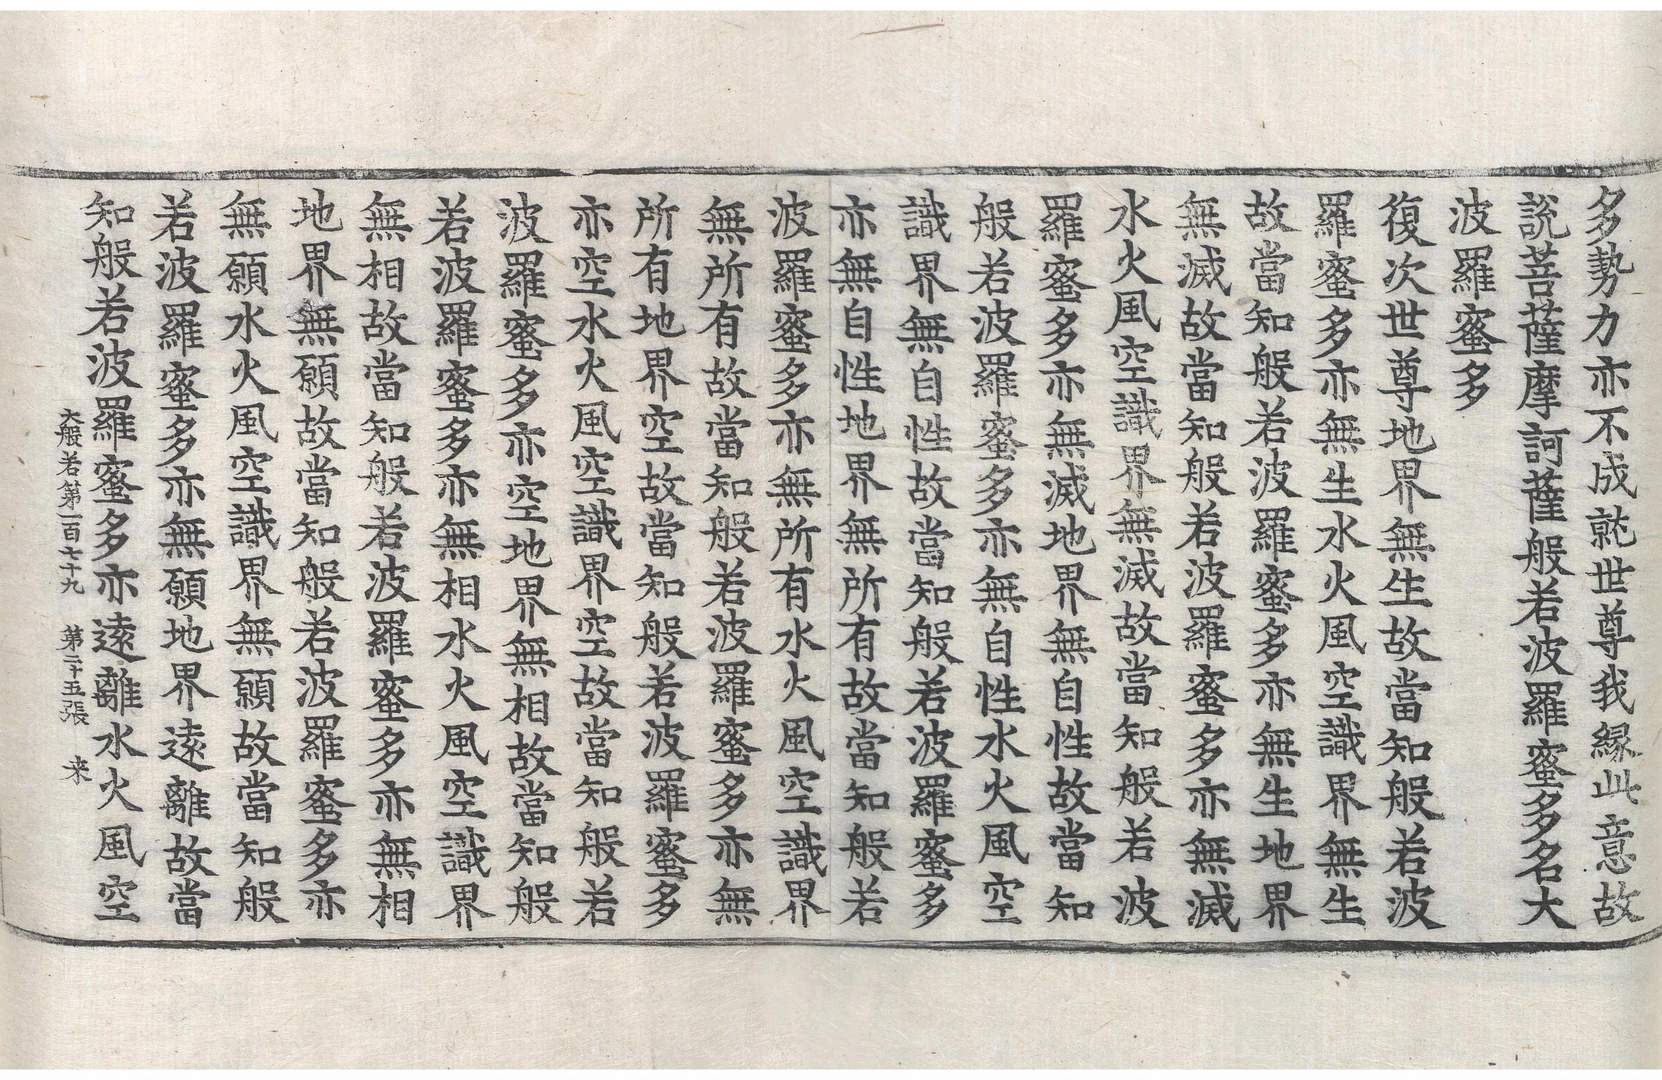 多勢力亦不成就世尊我緣此意故
說菩薩摩訶薩般若波羅蜜多名大
波羅蜜多
復次世尊地界無生故當知般若波
羅蜜多亦無生水火風空識界無生
故當知般若波羅蜜多亦無生地界
無滅故當知般若波羅蜜多亦無滅
水火風空識界無滅故當知般若波
羅蜜多亦無滅地界無自性故當知
般若波羅蜜多亦無自性水火風空
識界無自性故當知般若波羅蜜多
亦無自性地界無所有故當知般若
波羅蜜多亦無所有水火風空識界
無所有故當知般若波羅蜜多亦無
所有地界空故當知般若波羅蜜多
亦空水火風空識界空故當知般若
波羅蜜多亦空地界無相故當知般
若波羅蜜多亦無相水火風空識界
無相故當知般若波羅蜜多亦無相
地界無願故當知般若波羅蜜多亦
無願水火風空識界無願故當知般
若波羅蜜多亦無願地界遠離故當
知般若波羅蜜多亦遠離水火風空
大般若第一百七十九 第二十五張 来